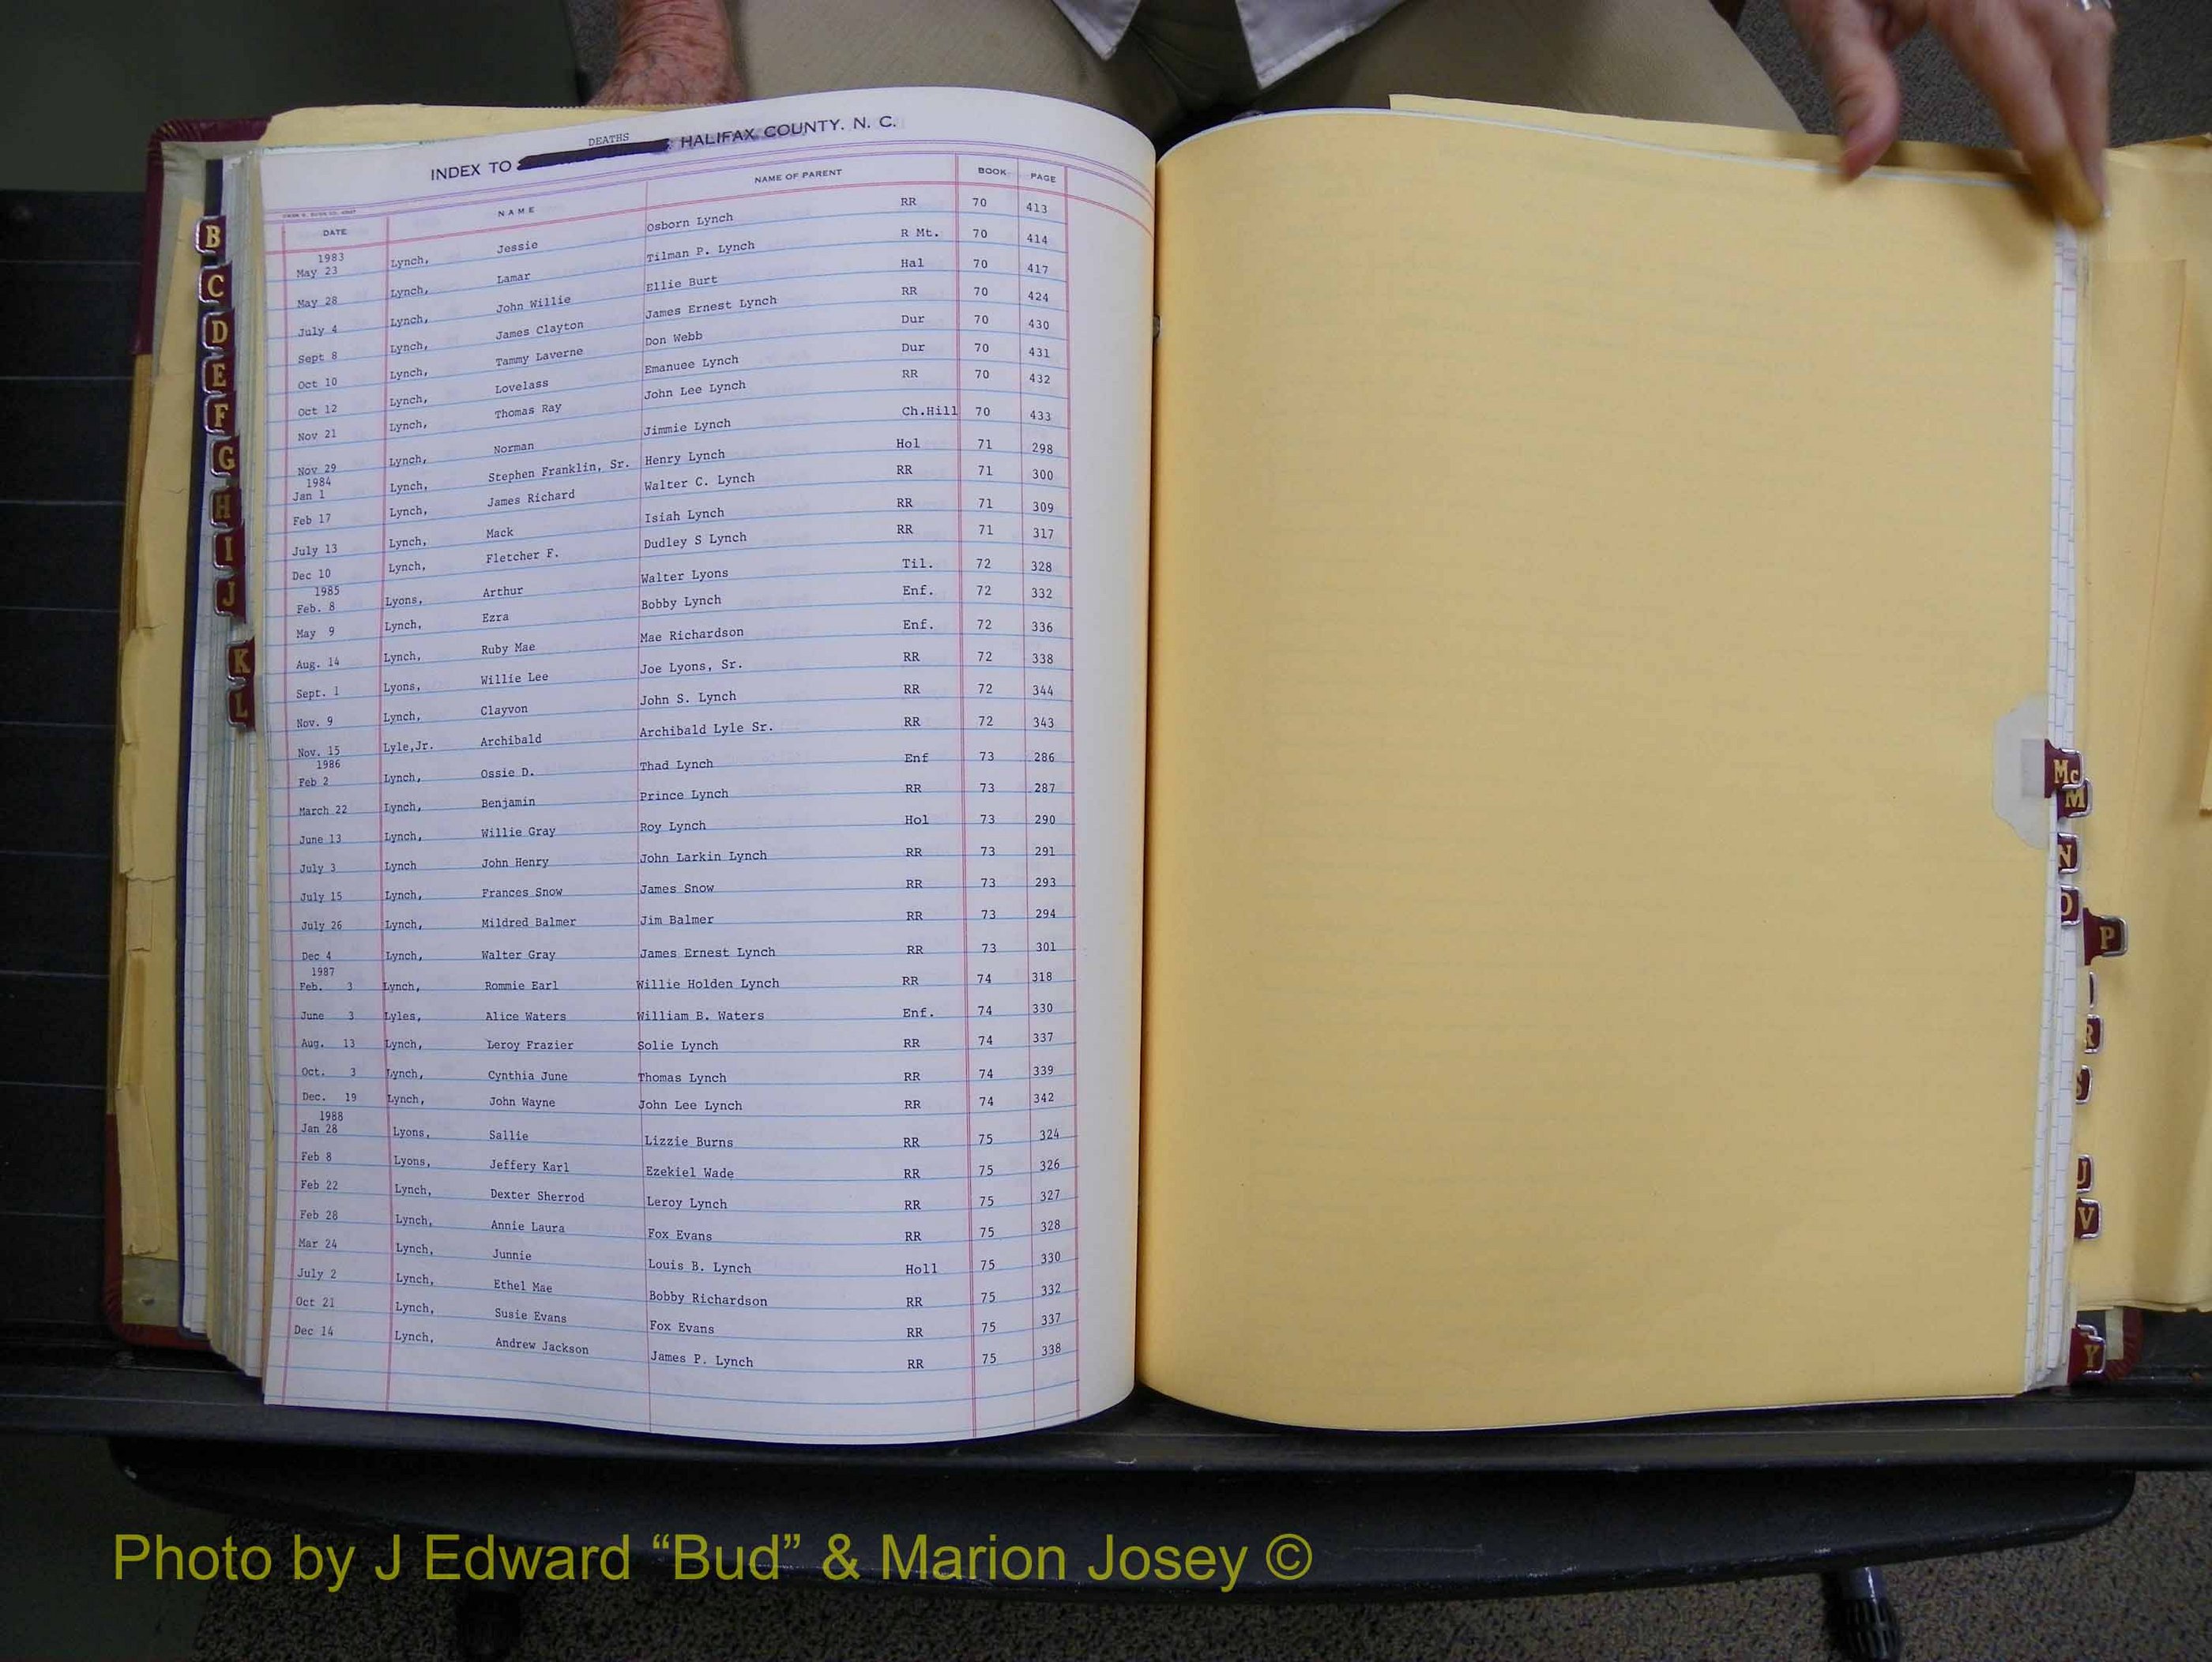 DEATHS
INDEX TO HALIFAX COUNTY. N. C.
DATE NAME NAME OF PARENT BOOK PAGE
1983
May 23 Lynch, Jessie Osborn Lynch RR 70 413
May 28 Lynch, Lamar Tilman P. Lynch R Mt. 70 414
July 4 Lynch, John Willie Ellie Burt Hal 70 417
Sept 8 Lynch, James Clayton James Ernest Lynch RR 70 424
Oct 10 Lynch, Tammy Laverne Don Webb Dur 70 430
Oct 12 Lynch, Lovelass Emanuee Lynch Dur 70 431
Nov 21 Lynch, Thomas Ray John Lee Lynch RR 70 432
Nov 29 Lynch, Norman Jimmie Lynch Ch.Hill 70 433
1984
Jan 1 Lynch, Stephen Franklin, Sr. Henry Lynch Hol 71 298
Feb 17 Lynch, James Richard Walter C. Lynch RR 71 300
July 13 Lynch, Mack Isiah Lynch RR 71 309
Dec 10 Lynch, Fletcher F. Dudley S Lynch RR 71 317
1985
Feb. 8 Lyons, Arthur Walter Lyons Til. 72 328
May 9 Lynch, Ezra Bobby Lynch Enf. 72 332
Aug. 14 Lynch, Ruby Mae Mae Richardson Enf. 72 336
Sept. 1 Lyons, Willie Lee Joe Lyons, Sr. RR 72 338
Nov. 9 Lynch, Clayvon John S. Lynch RR 72 344
Nov. 15 Lyle,Jr. Archibald Archibald Lyle Sr. RR 72 343
1986
Feb 2 Lynch, Ossie D. Thad Lynch Enf 73 286
March 22 Lynch, Benjamin Prince Lynch RR 73 287
June 13 Lynch, Willie Gray Roy Lynch Hol 73 290
July 3 Lynch John Henry John Larkin Lynch RR 73 291
July 15 Lynch, Frances Snow James Snow RR 73 293
July 26 Lynch, Mildred Balmer Jim Balmer RR 73 294
Dec 4 Lynch, Walter Gray James Ernest Lynch RR 73 301
1987
Feb. 3 Lynch, Rommie Earl Willie Holden Lynch RR 74 318
June 3 Lyles, Alice Waters William B. Waters Enf. 74 330
Aug. 13 Lynch, Leroy Frazier Solie Lynch RR 74 337
Oct. 3 Lynch, Cynthia June Thomas Lynch RR 74 339
Dec. 19 Lynch, John Wayne John Lee Lynch RR 74 342
1988
Jan 28 Lyons, Sallie Lizzie Burns RR 75 324
Feb 8 Lyons, Jeffery Karl Ezekiel Wade RR 75 326
Feb 22 Lynch, Dexter Sherrod Leroy Lynch RR 75 327
Feb 28 Lynch, Annie Laura Fox Evans RR 75 328
Mar 24 Lynch, Junnie Louis B. Lynch Holl 75 330
July 2 Lynch, Ethel Mae Bobby Richardson RR 75 332
Oct 21 Lynch, Susie Evans Fox Evans RR 75 337
Dec 14 Lynch, Andrew Jackson James P. Lynch RR 75 338
B
C
D
E
F
G
H
I
J
K
L
Mc
M
N
O
P
R
S
U
V
Y
Photo by J Edward “Bud” & Marion Josey ©